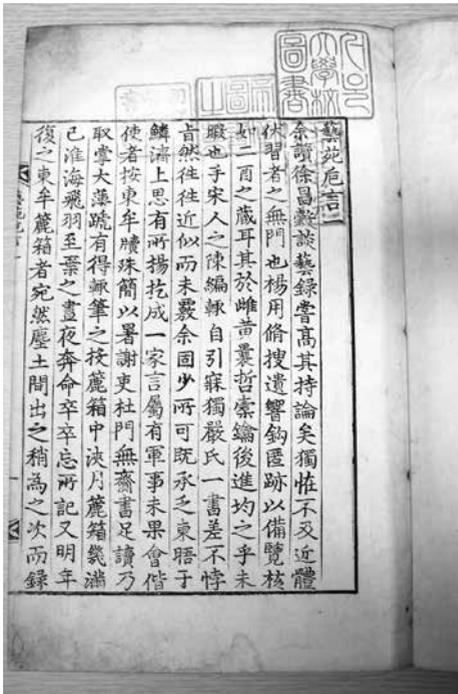 藝苑卮言一
余讀徐昌穀談藝録嘗髙其持論矣獨恠不及近體
伏習者之無門也楊用脩搜遺響鈎匿跡以備覽核
如二酉之蔵耳其於雌黄曩哲槖鑰後進均之乎未
暇也手宋人之陳編輒自引寐獨嚴氏一書差不悖
旨然徃徃近似而未覈余固少所可既承乏東晤于
鱗濟上思有所揚扢成一家言屬有軍事未果會偕
使者按東牟牘殊簡以暑謝吏杜門無齋書足讀乃
取掌大薄蹏有得輒筆之投簏箱中浹月簏箱幾滿
已淮海飛羽至棄之晝夜奔命卒卒忘所記又明年
復之東牟簏箱者宛然塵土間出之稍為之次而録